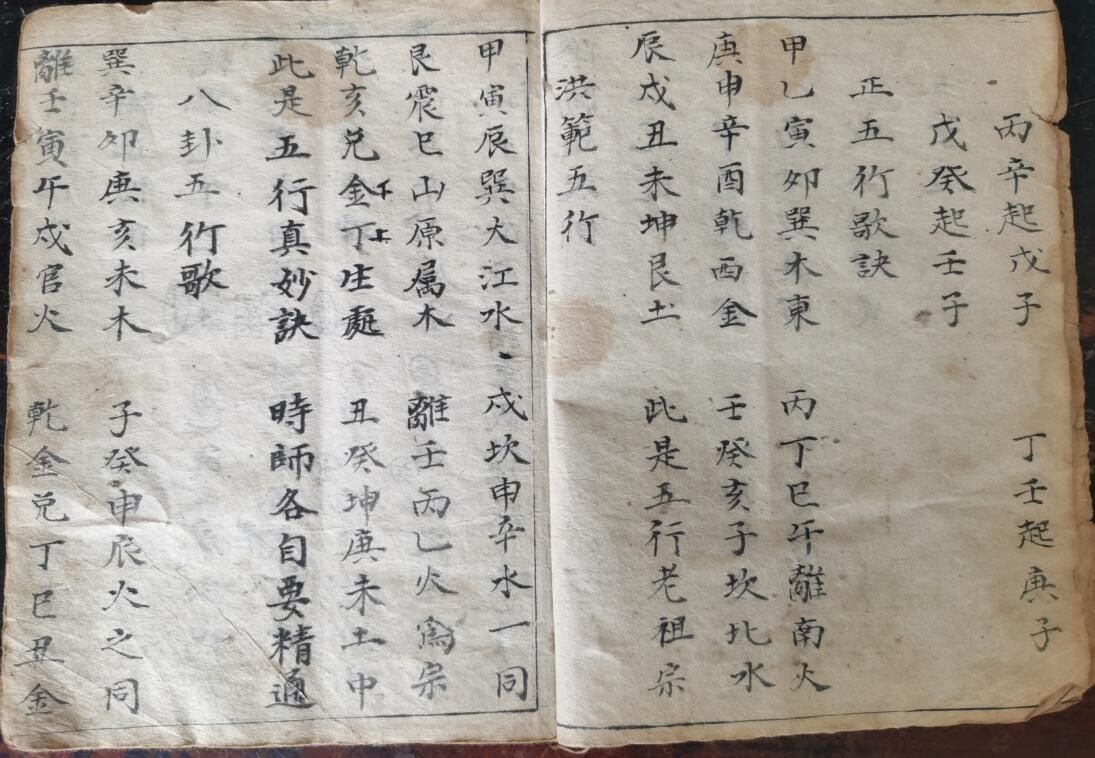 丙辛起戊子 丁壬起庚子
戊癸起壬子
正五行歌訣
甲乙寅卯巽木東 丙丁巳午離南火
庚申辛酉乾西金 壬癸亥子坎北水
辰戌丑未坤艮土 此是五行老祖宗
洪範五行
甲寅辰巽大江水 戌坎申辛水一同
艮震巳山原属木 離壬丙乙火為宗
乾亥兌金丁生處 丑癸坤庚未土中
此是五行真妙訣 時師各自要精通
八卦五行歌
巽辛卯庚亥未木 子癸申辰火之同
離壬寅午戌官火 乾金兌丁巳丑金